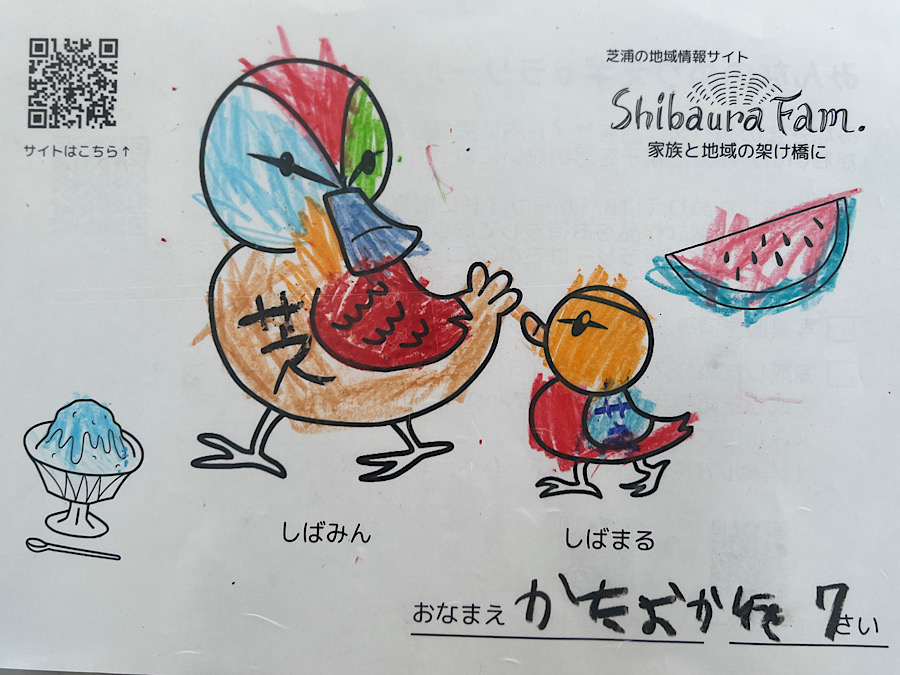 芝浦の地域情報サイト
Shibaura Fam.
家族と地域の架け橋に
サイトはこちら↑
芝
芝
しばみん
しばまる
おなまえ かたおか 7さい